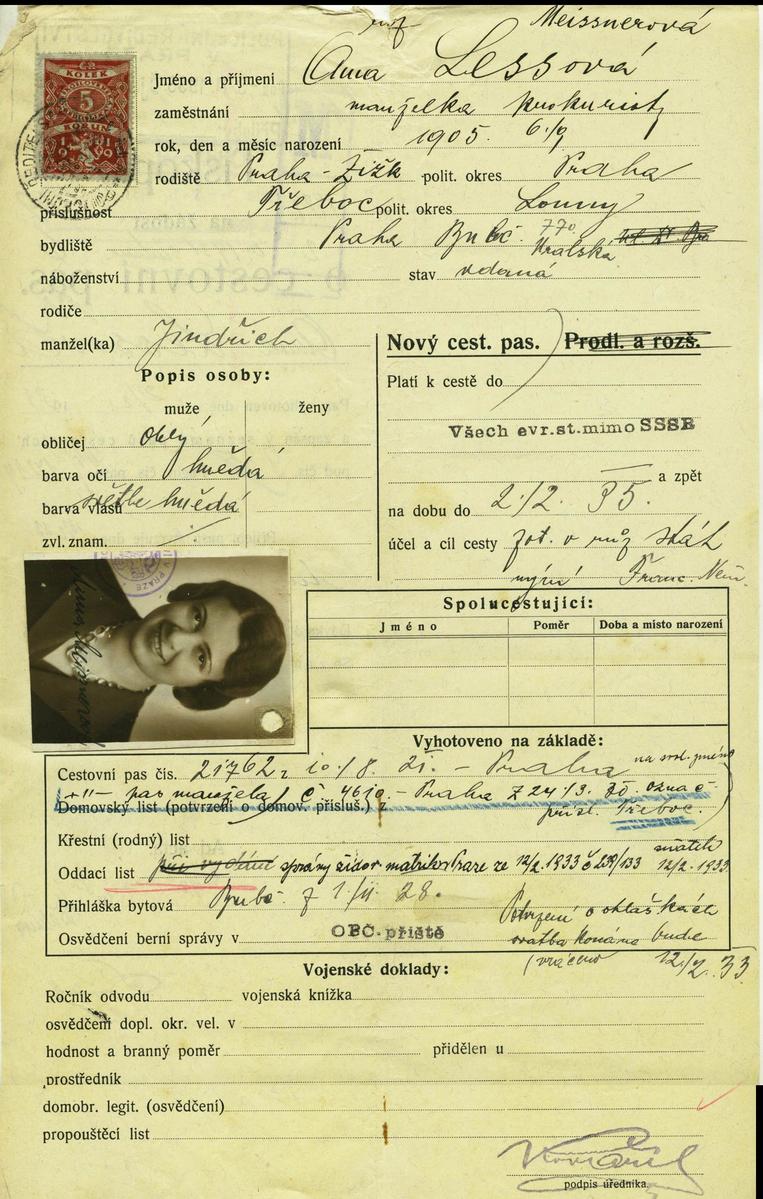 Meissnerová
Jméno a příjmení Anna Lessová
zaměstnání manželka prokuristy
rok, den a měsíc narození 1905. 6./9
rodiště Praha-Žižk polit. okres Praha
příslušnost Třeboc polit. okres Louny
770
bydliště Praha Bubč. Uralská
náboženství stav vdaná
rodiče
manžel(ka) Jindřich
Nový cest. pas. Prodl. a rozš.
Popis osoby:
muže ženy
obličej oblý
barva očí hnědá
barva vlasů světle hnědá
zvl. znam.
Platí k cestě do
Všech evr.st.mimo SSSR
a zpět
na dobu do 2./2. 35.
účel a cíl cesty v
nyní Franc. Něm.
KOLEK
5
KORUN
1919
V PRAZE
Spolucestující:
Jméno Poměr Doba a místo narození
Vyhotoveno na základě:
Cestovní pas čís. 21762 z 10./8. Praha na svob. jméno
pas manžela č. 4610 - Praha z 24/3.
Domovský list (potvrzení o domov. přísluš.) z přísl. Třeboc.
Křestní (rodný) list
Oddací list při vydání správy židov. matrik v Praze ze 12/2. 1933 č 239/133 sňatek 12/2. 1933
Přihláška bytová Bubč. z 1./11. 28. Potvrzení o ohláškách
Osvědčení berní správy v OPČ.příště svatba konána bude
(vráceno 12./2. 33
Vojenské doklady:
Ročník odvodu vojenská knížka
osvědčení dopl. okr. vel. v
hodnost a branný poměr přidělen u
prostředník
domobr. legit. (osvědčení)
propouštěcí list
podpis úředníka.